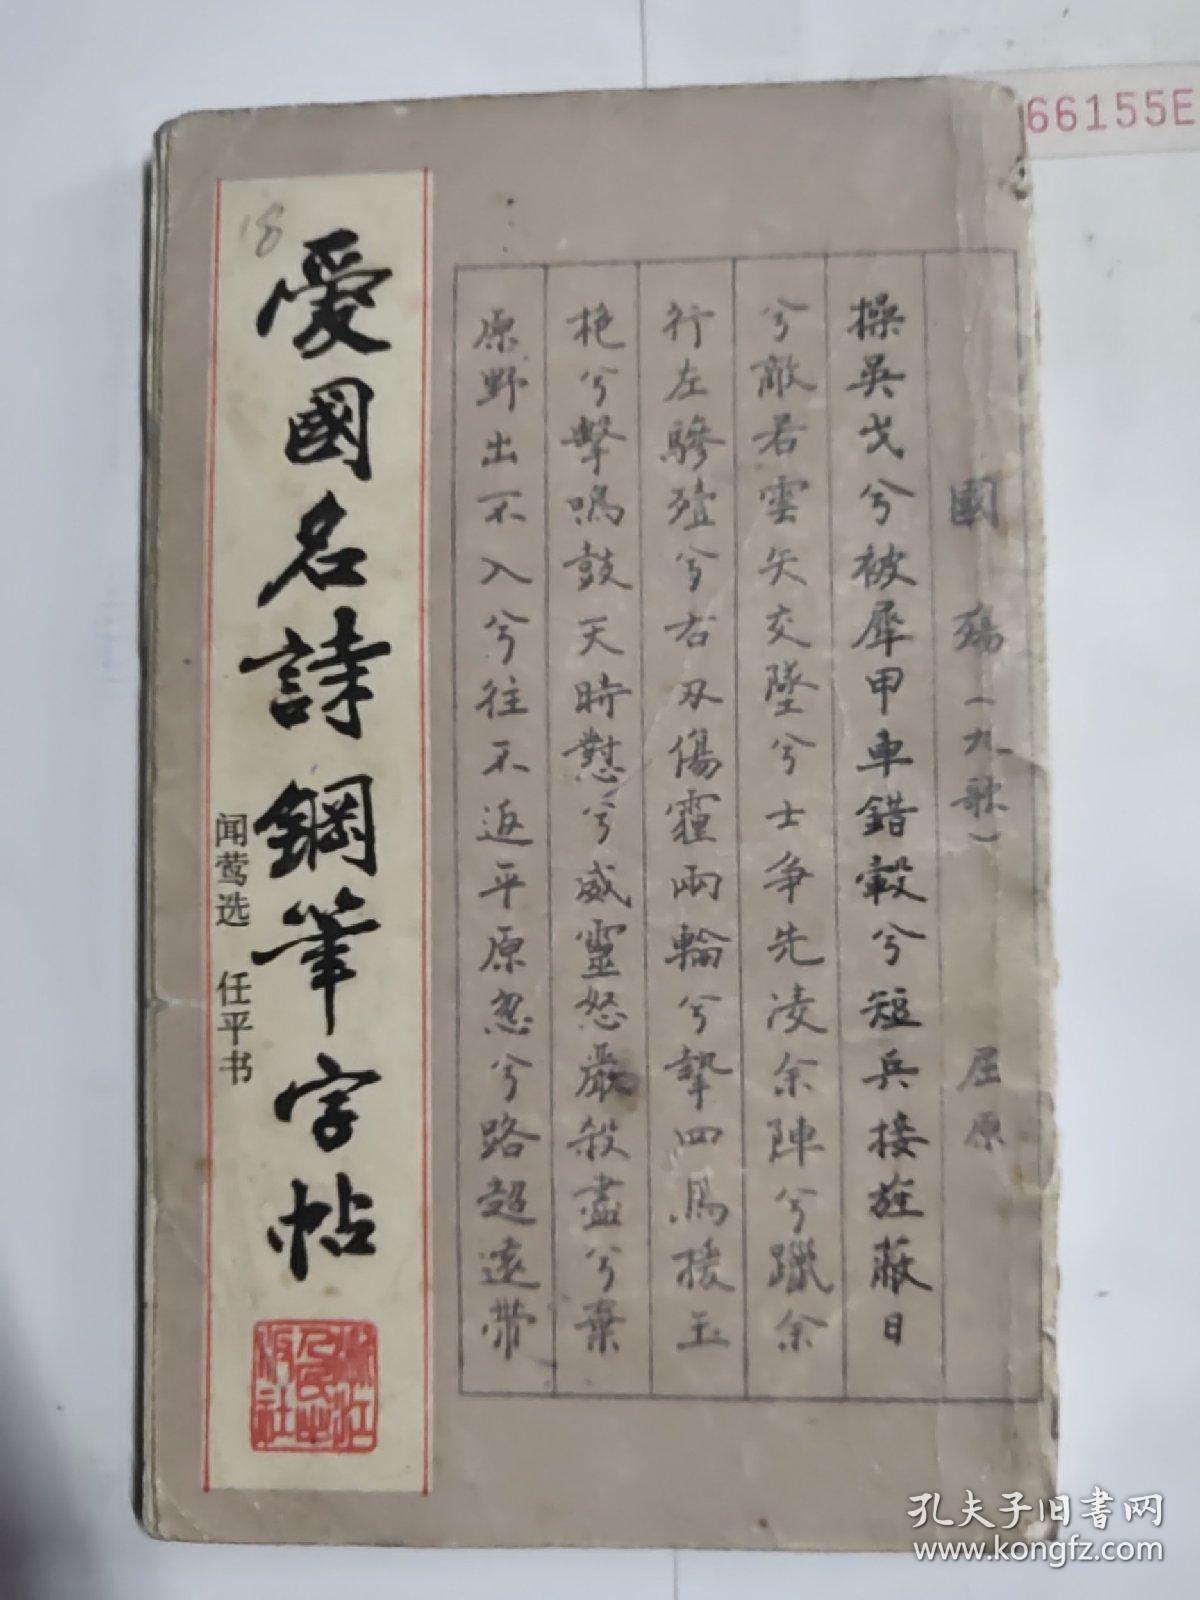 66155E
18
愛國名詩鋼筆字帖
闻莺选 任平书
浙江人民出版社
國殤（九歌） 屈原
操吳戈兮被犀甲車錯轂兮短兵接旌蔽日
兮敵若雲矢交墜兮士争先凌余陣兮躐余
行左驂殪兮右刃傷霾兩輪兮縶四馬援玉
枹兮擊鳴鼓天時懟兮威靈怒嚴殺盡兮棄
原野出不入兮往不返平原忽兮路超遠帶
孔夫子旧书网
www.kongfz.com